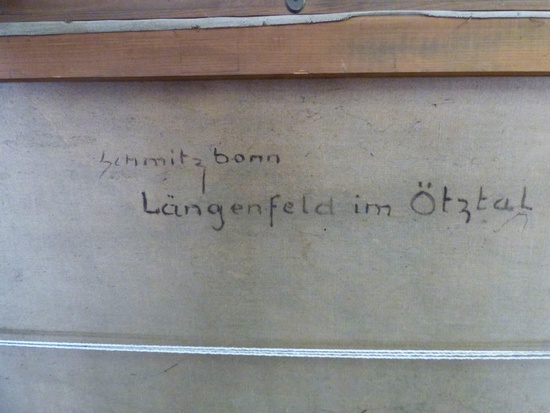 schmitzbonn
Längenfeld im Ötztal